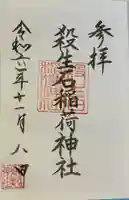 参拝
殺生石稲荷神社
令和二年十一月八日